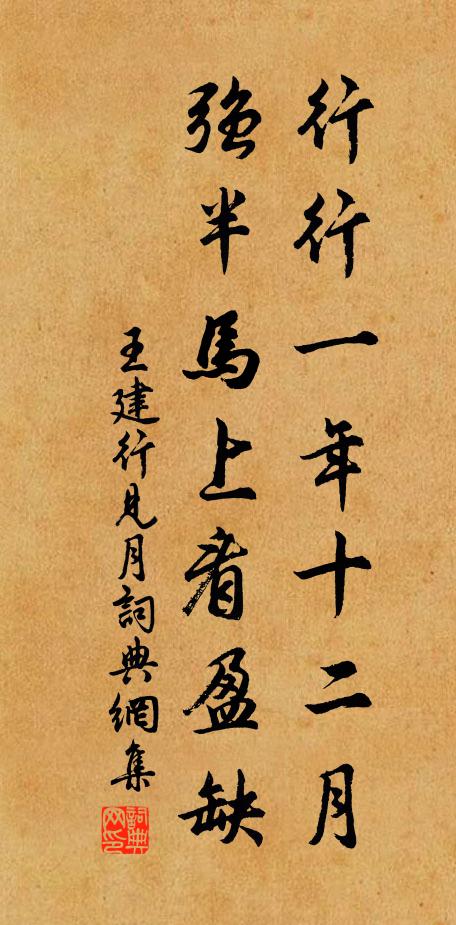 行行一年十二月
強半馬上看盈缺
王建行見月詞典網集
詞典網印